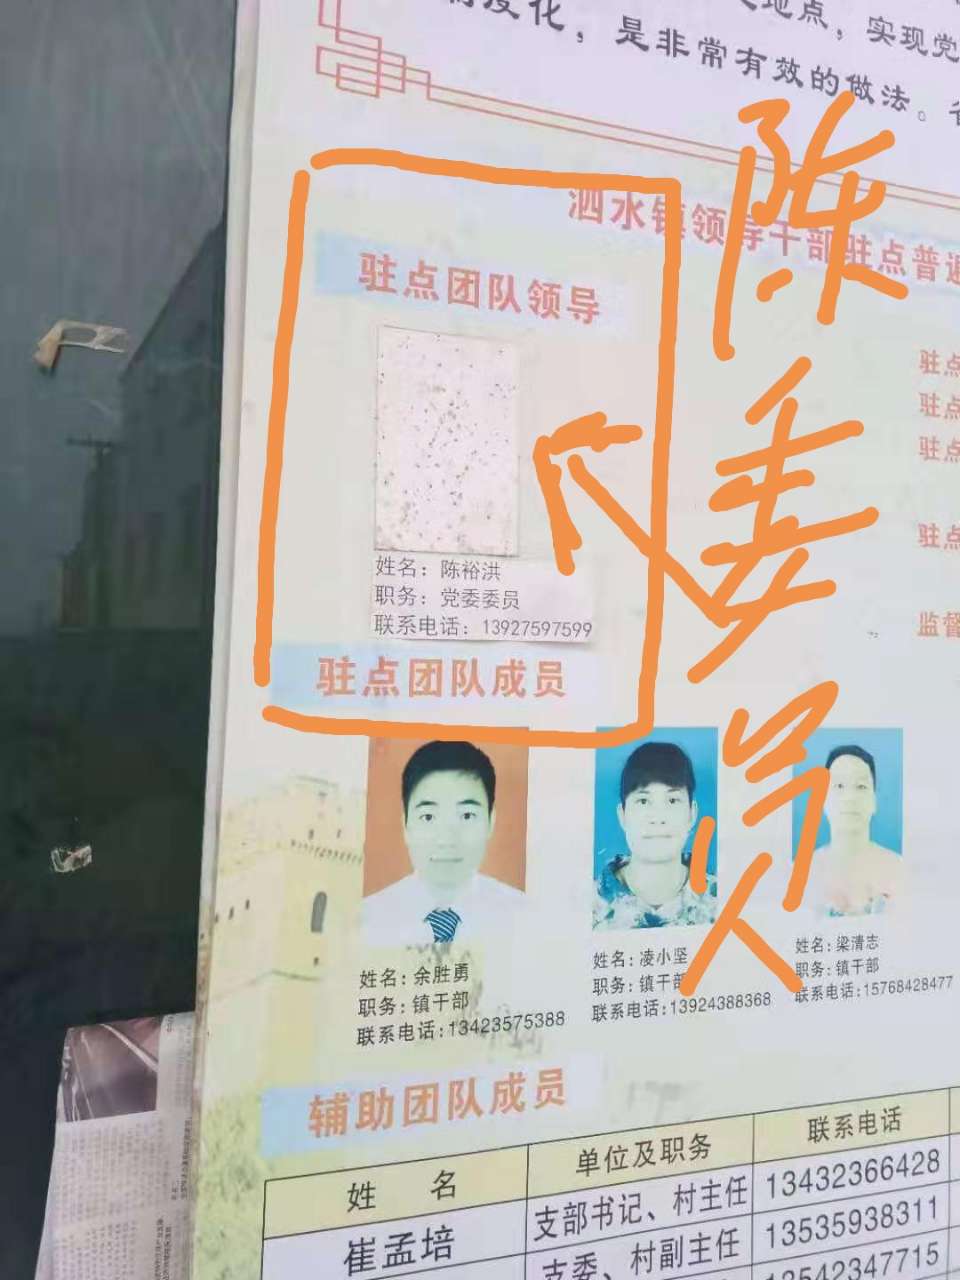 度化，是非常有效的做法。
地点，实现党
泗水镇领导干部驻点普遍
驻点团队领导
姓名：陈裕洪
职务：党委委员
联系电话：13927597599
陈委员
驻点
驻点
驻点
驻点
监督
驻点团队成员
姓名：余胜勇
职务：镇干部
联系电话：13423575388
姓名：凌小坚
职务：镇干部
联系电话：13924388368
姓名：梁清志
职务：镇干部
联系电话：15768428477
辅助团队成员
姓 名 单位及职务 联系电话
崔孟培 支部书记、村主任 13432366428
支委、村副主任 13535938311
13542347715